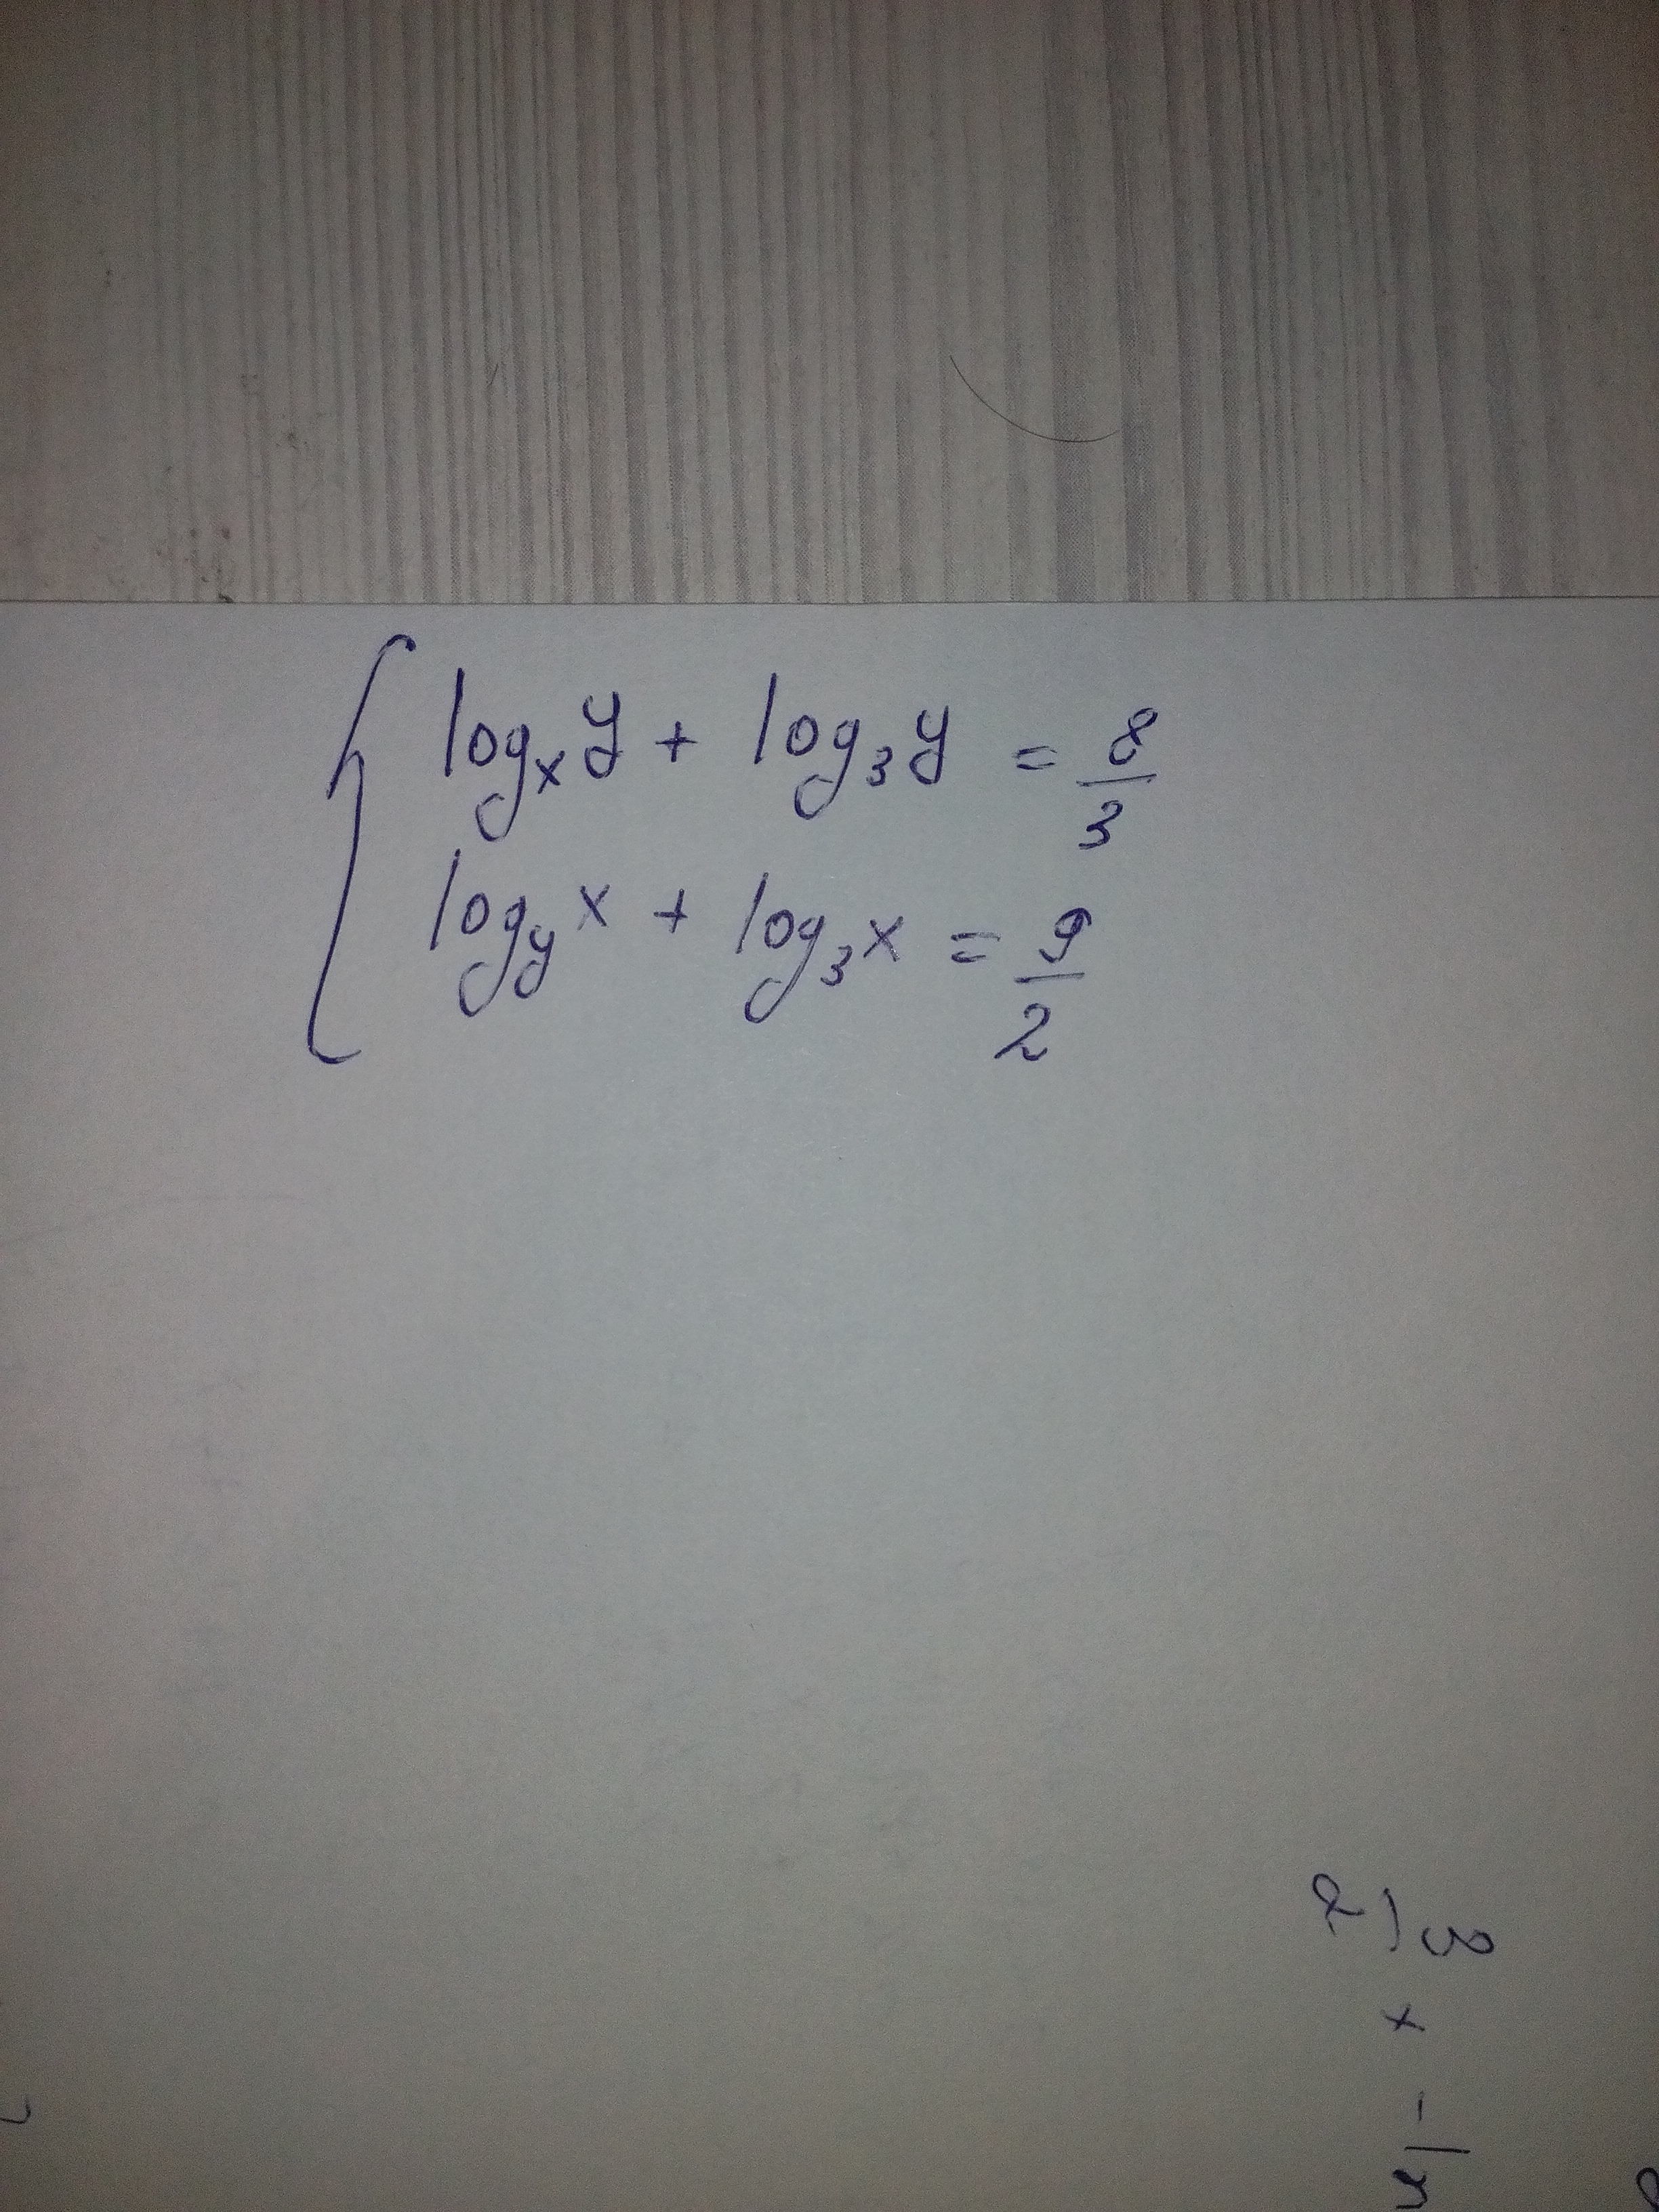 log_x y + log_3 y = 8/3
log_y x + log_3 x = 9/2